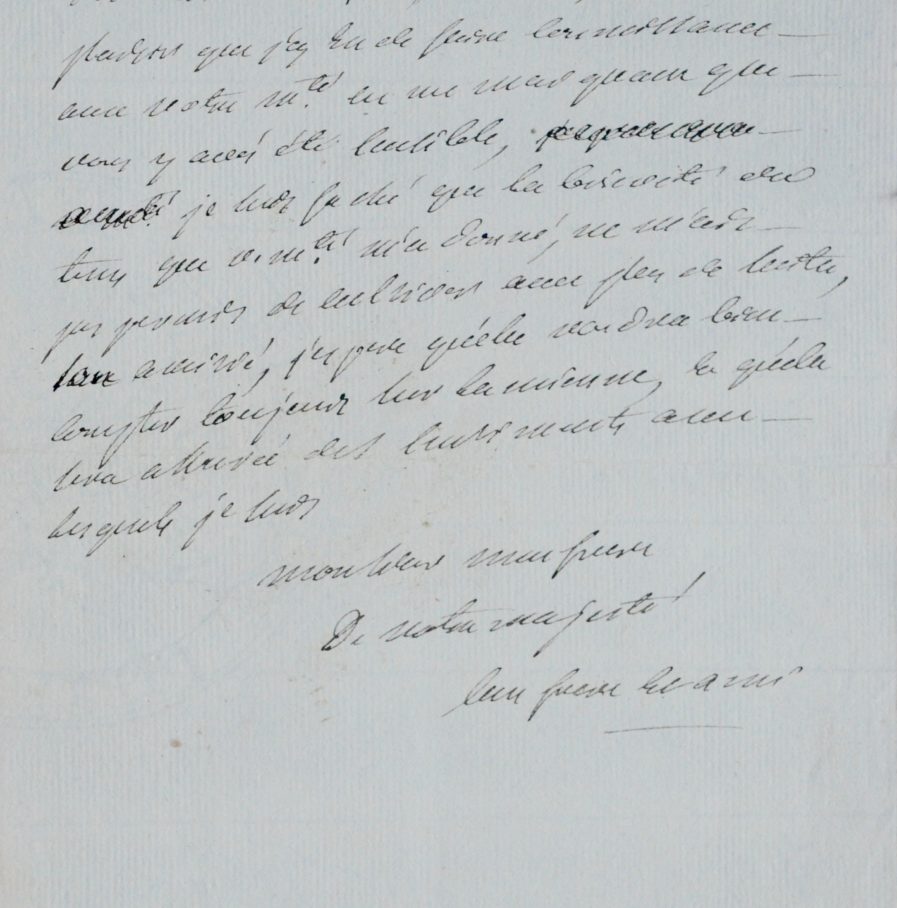 plaisir que j'ay eu de faire connoissance
avec votre m.té en me marquant que
vous y avés été sensible,
je suis faché que la brieveté du
tems que v. m.té m'a donné, ne m'ait
pas permis de cultiver avec plus de suitte,
son amitié, j'espere qu'elle voudra bien
compter toujours sur la mienne, et qu'elle
sera assurée des sentiments avec
lesquels je suis
monsieur mon frere
De votre majesté
bon frere et ami